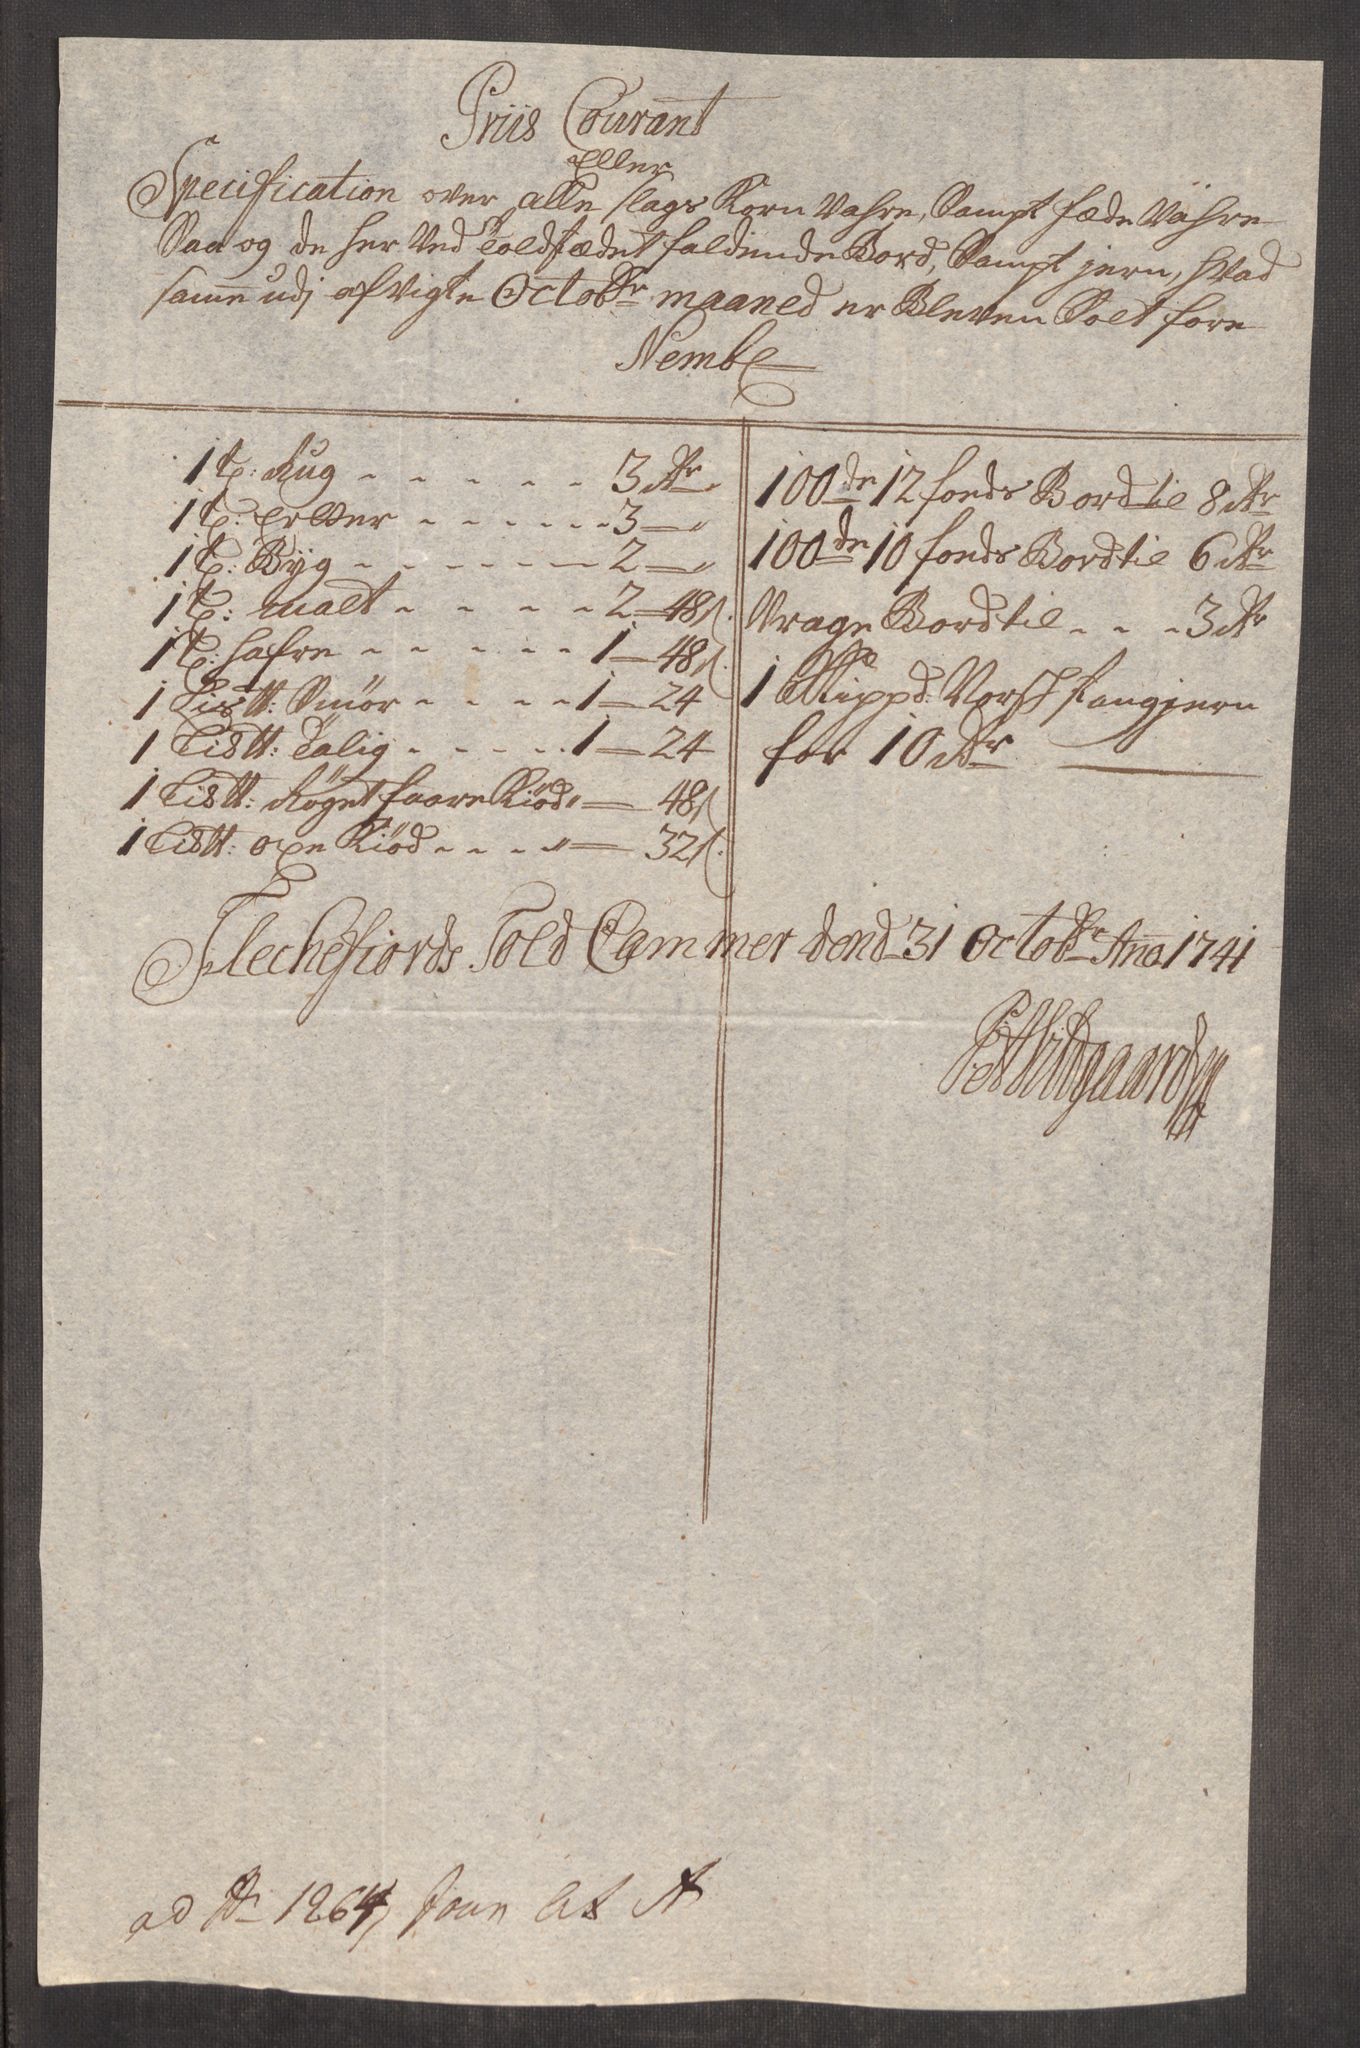 Priis Courant
Eller
Specification over alle slags Korn Vahre, Sampt fæde Vahre
Saa og de her Ved Toldstædet faldende Bord, Sampt jern, hvad
samme udj afvigte Octobr maaned er Bleven Solt fore
Nembl
1 t: Rug - - - - - 3 dr "
1 t: Ertter - - - - - - 3 — "
1 t: Byg - - - - - - 2 — "
1 t: malt - - - - 2 — 48 s.
1 t: hafre - - - - - 1 — 48 s.
1 Lis tt: Smör - - - - 1 — 24
1 Lis tt: Talig - - - - - 1 — 24
1 Lis tt: Röget faare Kiöd " — 48 s
1 Lis tt: oxe Kiöd - - - - " — 32 s.
100de 12 fods Bord til 8 dr
100de 10 fods Bord til 6 dr
Vrage Bord til - - - 3 dr
1 Skippd: Norsk stangjern
for 10 dr
Flechefiords Told Cammer dend 31 Octobr Ano 1741
Pet Wildgaard
ad No 1264, Joun Lit A